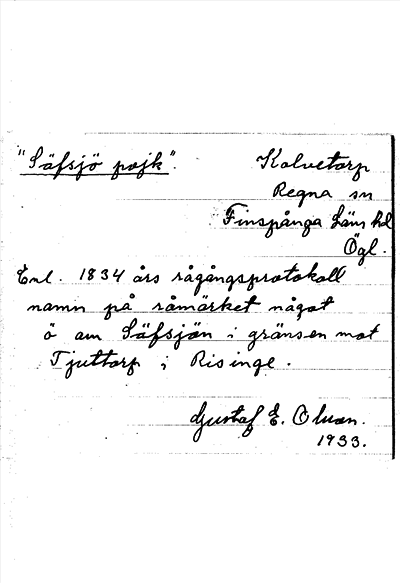 "Säfsjö pojk".
Kalvetorp
Regna sn
Finspånga Läns hd
Ögl.
Enl. 1834 års rågångsprotokoll
namn på råmärket något
ö am Säfsjön i gränsen mot
Tjuttorp i Risinge.
Gustaf E. Olsson.
1933.